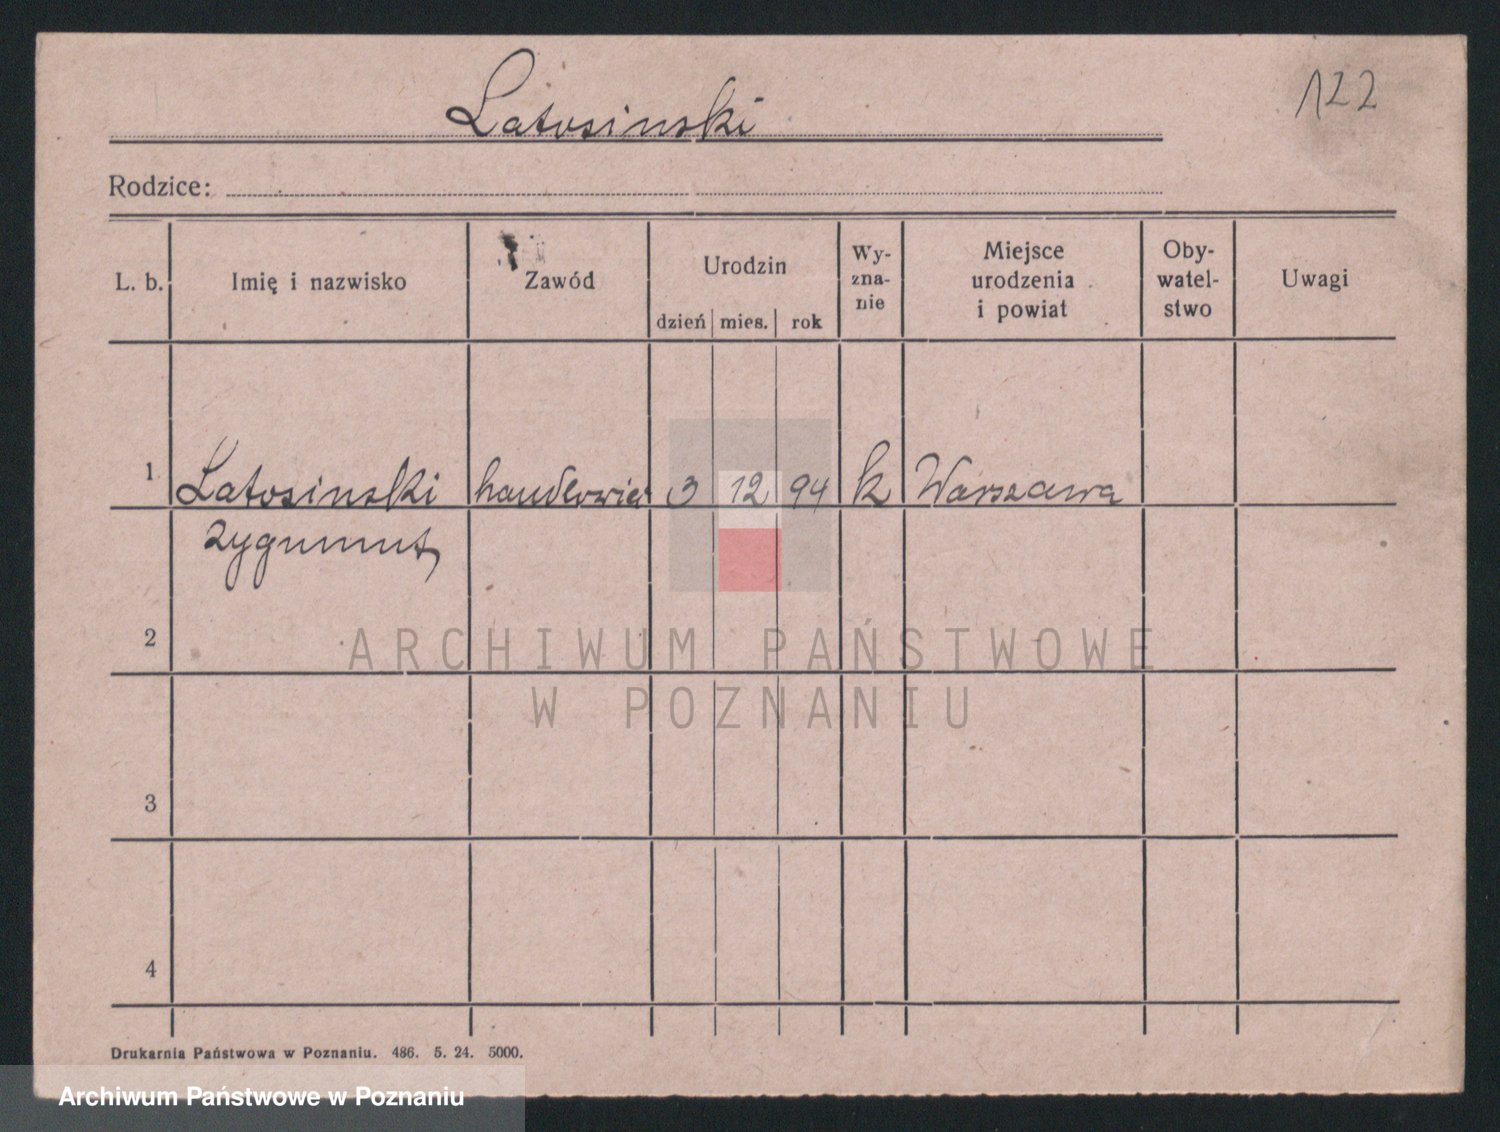 122
Latosinski
Rodzice:
L. b. Imię i nazwisko Zawód Urodzin dzień mies. rok Wy-zna-nie Miejsce urodzenia i powiat Oby-watel-stwo Uwagi
1 Latosinski handlowiec 3 12 94 k Warszawa
Zygmunt
2
ARCHIWUM PAŃSTWOWE
W POZNANIU
3
4
Drukarnia Państwowa w Poznaniu. 486. 5. 24. 5000.
Archiwum Państwowe w Poznaniu